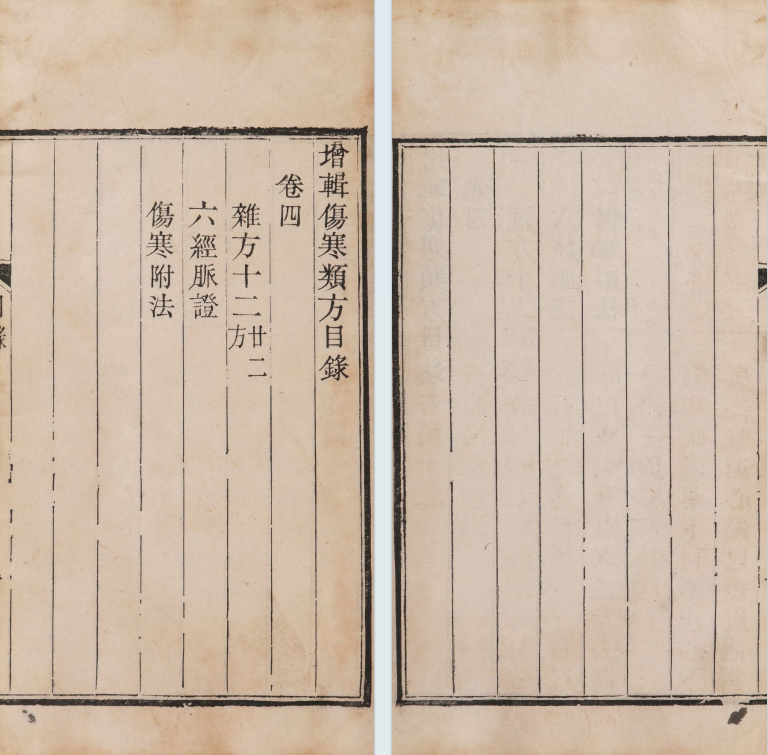 增輯傷寒類方目錄
卷四
雜方十二廿二方
六經脈證
傷寒附法
錄